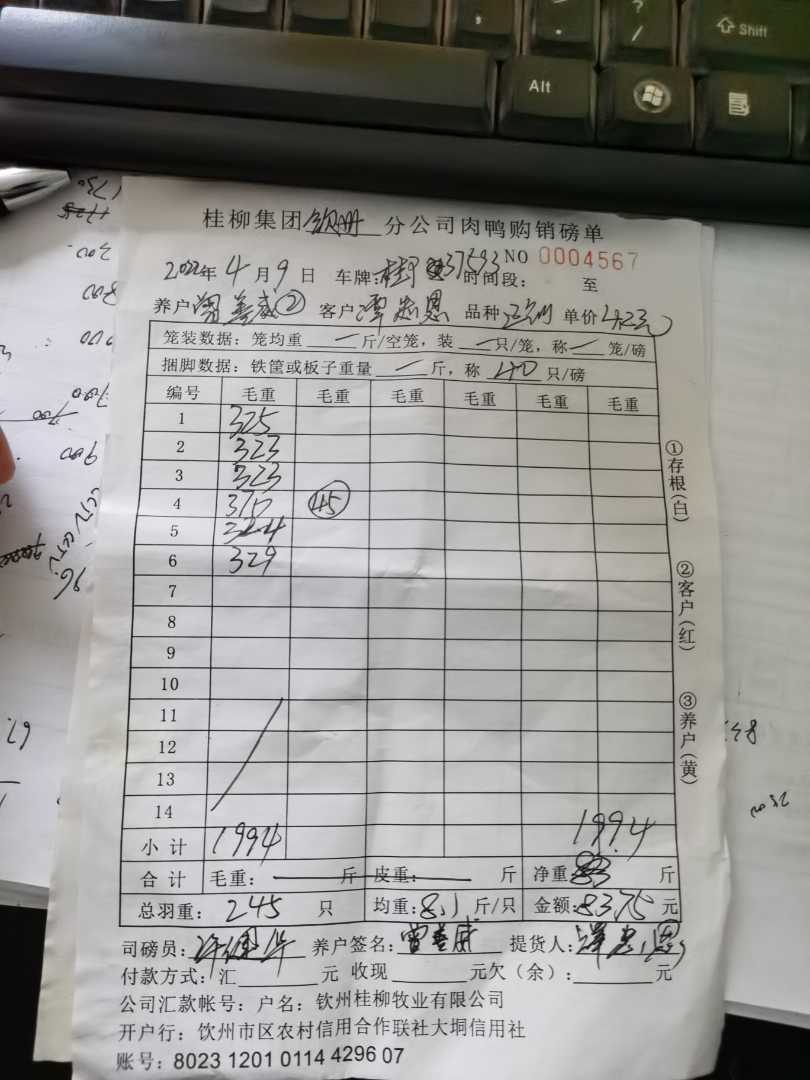 Shift
Alt
桂柳集团钦州分公司肉鸭购销磅单
NO 0004567
2022年4月9日 车牌:桂 37593 时间段: 至
养户曾善威② 客户 谭忠恩 品种 单价4.2元
笼装数据：笼均重 — 斤/空笼，装 — 只/笼，称 — 笼/磅
捆脚数据：铁筐或板子重量 — 斤，称 40 只/磅
编号 毛重 毛重 毛重 毛重 毛重 毛重
1 325
2 323
3 323
4 370 45
5 324
6 329
7
8
9
10
11
12
13
14
小计 1994 1994
合计 毛重: 斤 皮重: 斤 净重 斤
总羽重: 245 只 均重:8.1斤/只 金额:8375元
司磅员: 养户签名: 曾善威 提货人: 谭忠恩
付款方式: 汇 元 收现 元欠（余）: 元
公司汇款帐号: 户名: 钦州桂柳牧业有限公司
开户行: 钦州市区农村信用合作联社大垌信用社
账号: 8023 1201 0114 4296 07
①存根(白)
②客户(红)
③养户(黄)